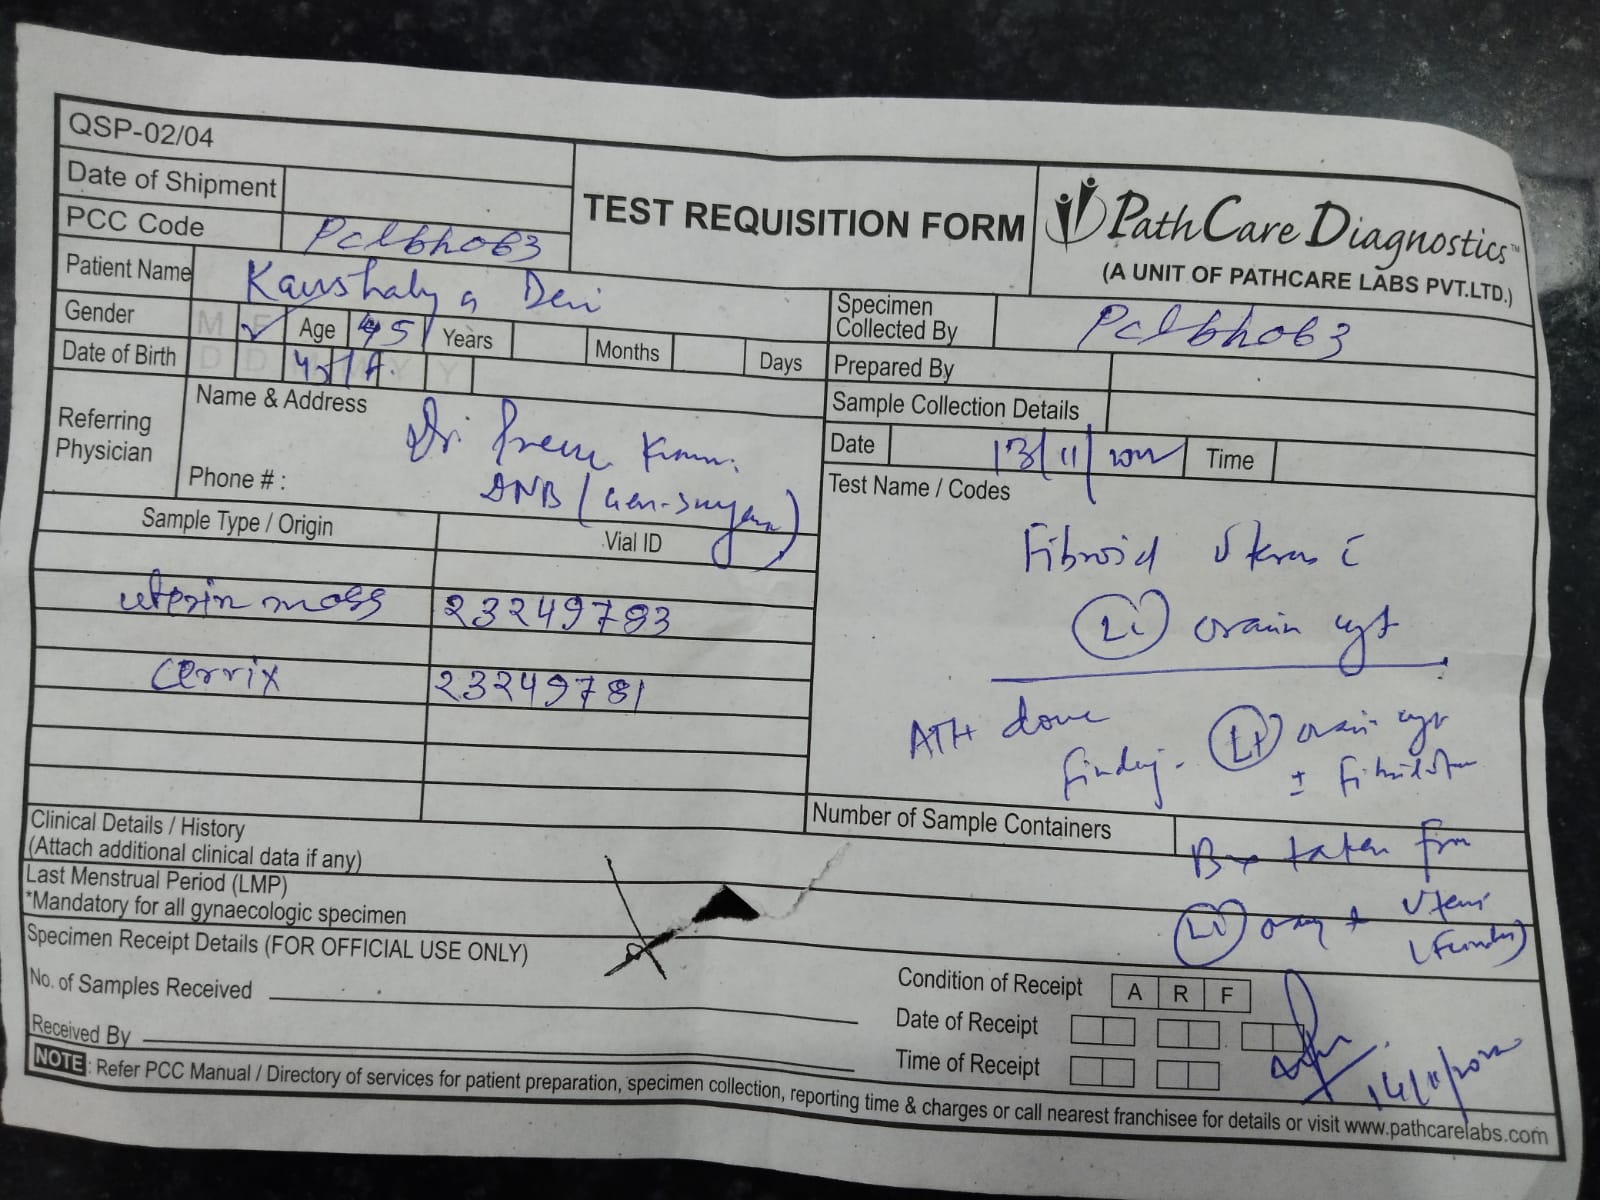 QSP-02/04
Date of Shipment
PCC Code Pclbh063
TEST REQUISITION FORM
PathCare Diagnostics™
(A UNIT OF PATHCARE LABS PVT.LTD.)
Patient Name Kaushalya Devi
Gender M F ✓ Age 45 Years Months Days
Date of Birth D D M M Y Y 45/F
Referring Physician
Name & Address
Dr. Prem Kumar
DNB (Gen-Surgery)
Phone # :
Specimen Collected By Pclbh063
Prepared By
Sample Collection Details
Date 13/11/2022 Time
Sample Type / Origin Vial ID
uterin mass 23249783
cervix 23249781
Test Name / Codes
Fibroid Uterus c
(Lt) ovarian cyst
ATH done
Finding - (Lt) ovarian cyst
± Fibroid
Number of Sample Containers
Bx taken from
(Lt) ovary + Uterus
(Fundus)
Clinical Details / History
(Attach additional clinical data if any)
Last Menstrual Period (LMP)
*Mandatory for all gynaecologic specimen
Specimen Receipt Details (FOR OFFICIAL USE ONLY)
No. of Samples Received
Received By
Condition of Receipt A R F
Date of Receipt
Time of Receipt
14/11/2022
NOTE : Refer PCC Manual / Directory of services for patient preparation, specimen collection, reporting time & charges or call nearest franchisee for details or visit www.pathcarelabs.com